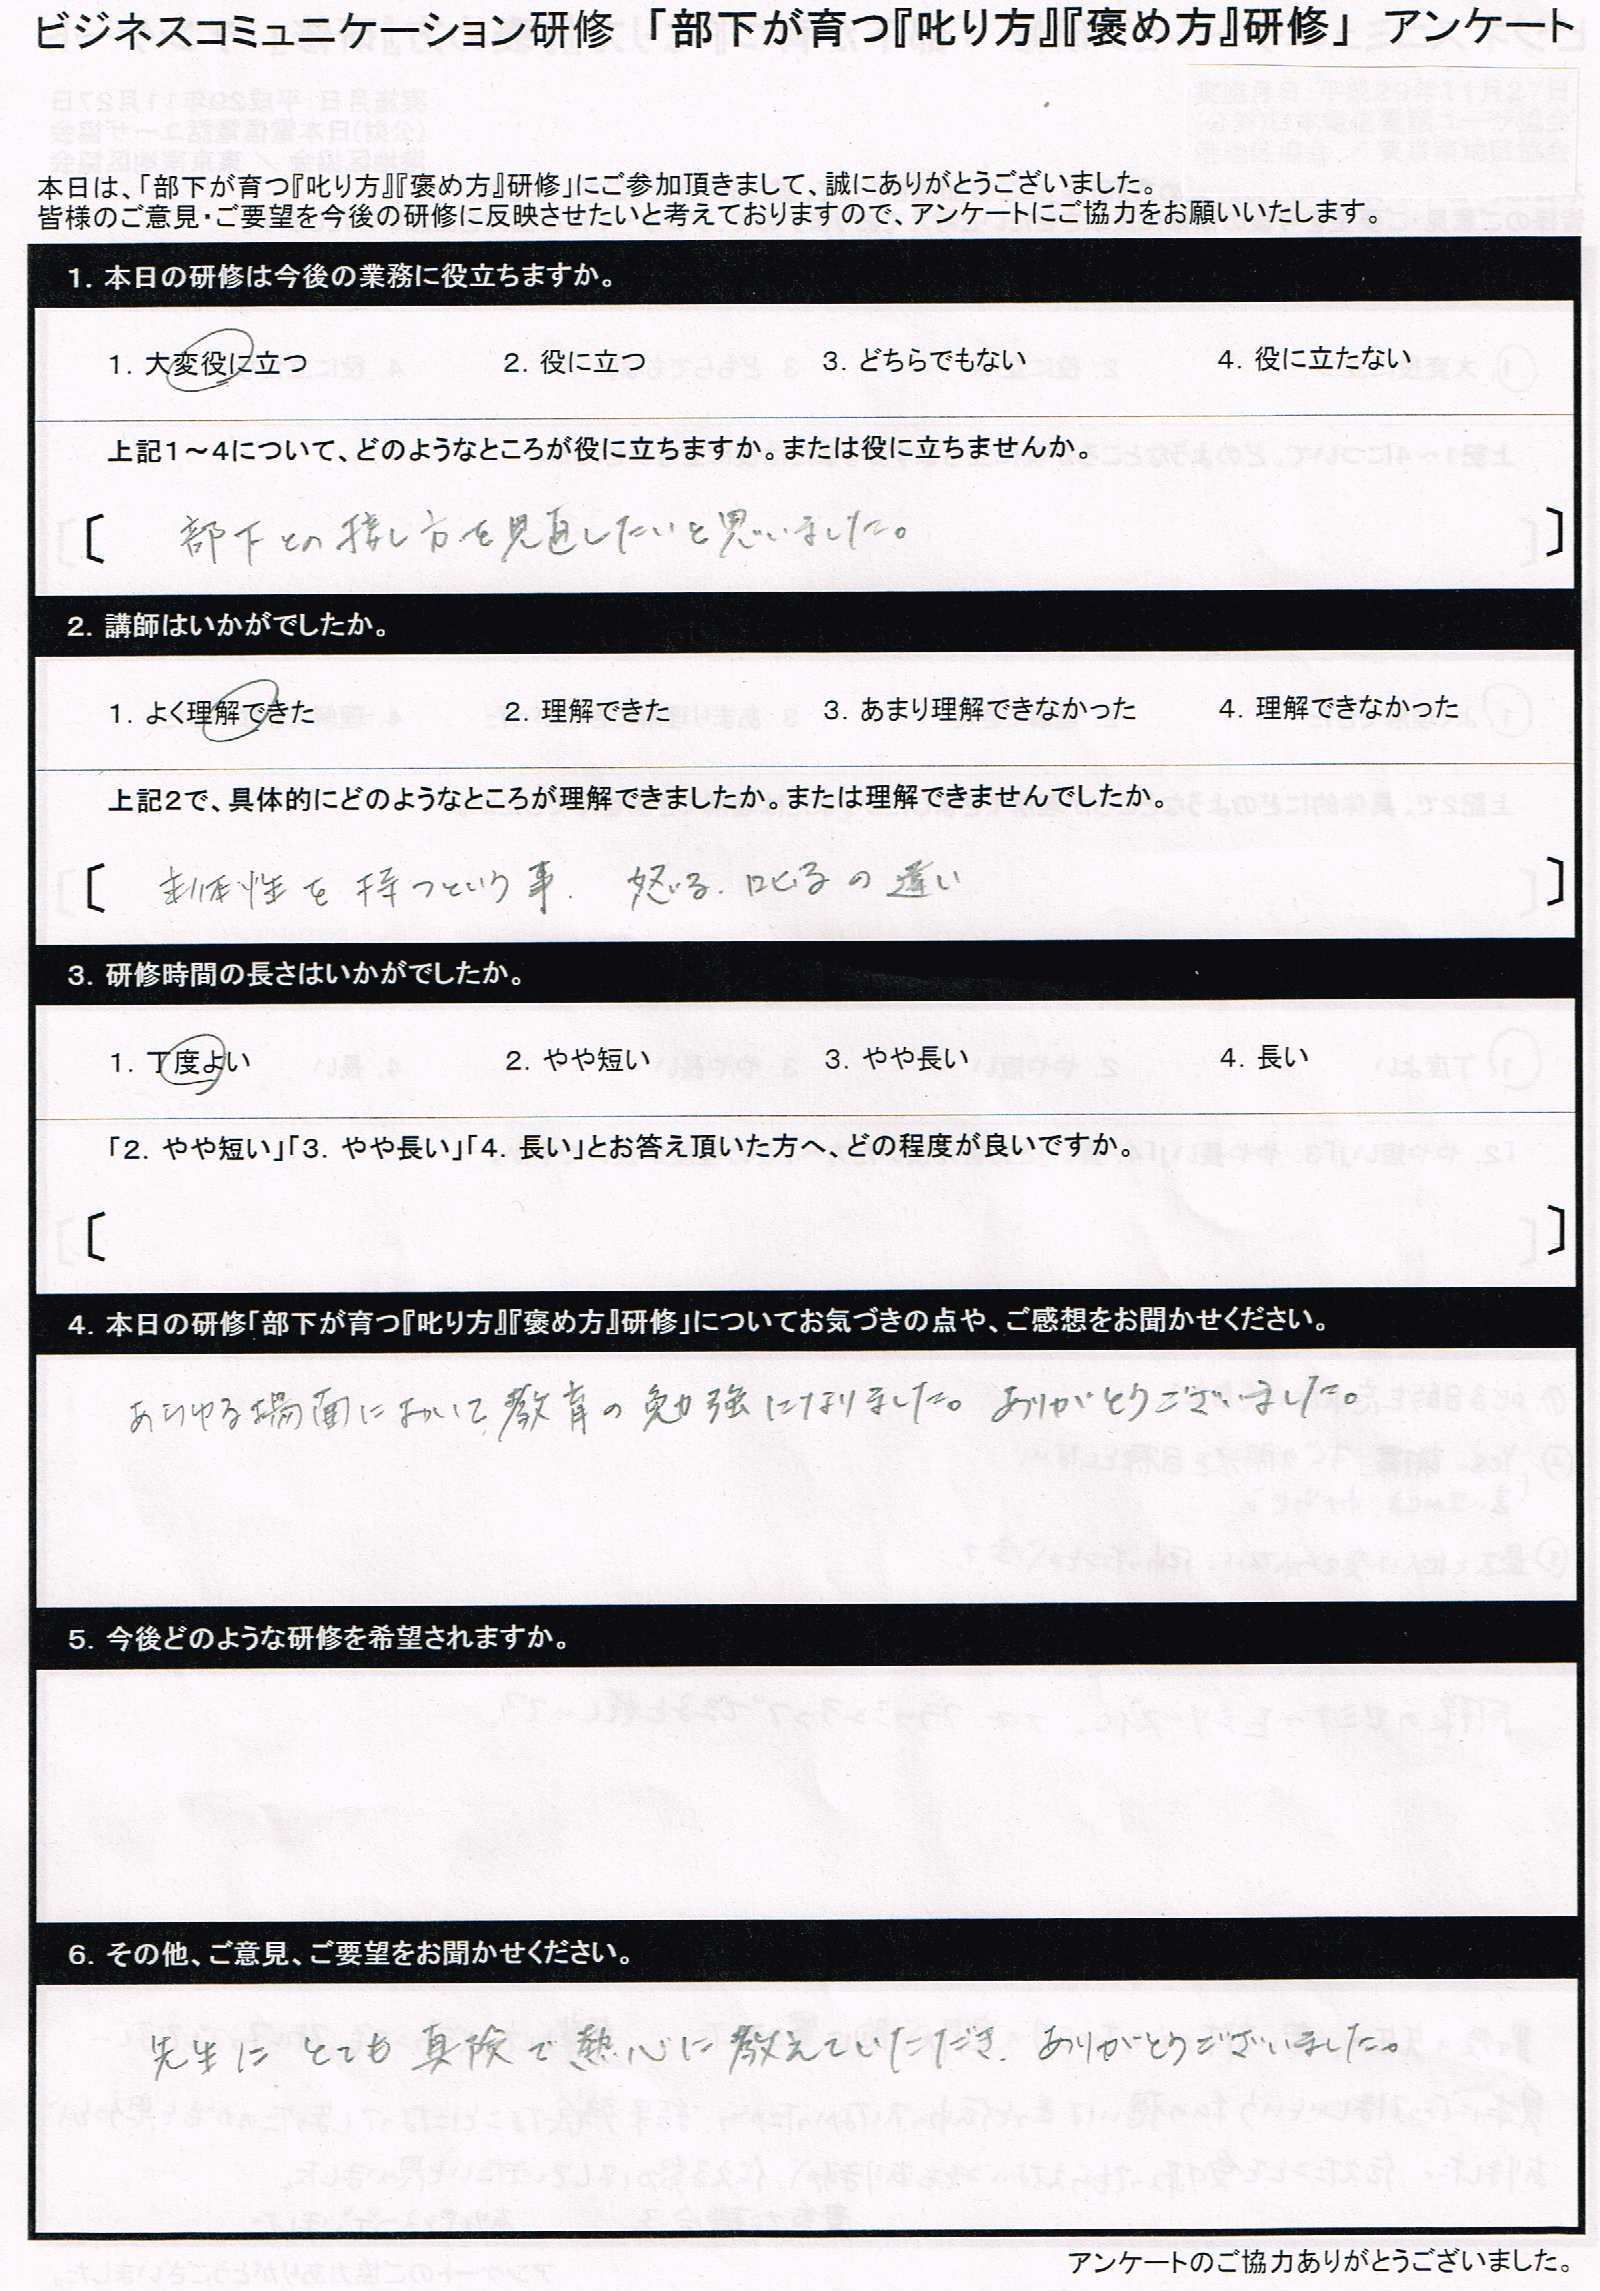 ビジネスコミュニケーション研修 「部下が育つ『叱り方』『褒め方』研修」 アンケート
本日は、「部下が育つ『叱り方』『褒め方』研修」にご参加頂きまして、誠にありがとうございました。
皆様のご意見・ご要望を今後の研修に反映させたいと考えておりますので、アンケートにご協力をお願いいたします。
1. 本日の研修は今後の業務に役立ちますか。
1. 大変役に立つ 2. 役に立つ 3. どちらでもない 4. 役に立たない
上記1～4について、どのようなところが役に立ちますか。または役に立ちませんか。
〔 部下との接し方を見直したいと思いました。 〕
2. 講師はいかがでしたか。
1. よく理解できた 2. 理解できた 3. あまり理解できなかった 4. 理解できなかった
上記2で、具体的にどのようなところが理解できましたか。または理解できませんでしたか。
〔 主体性を持つという事. 怒る.叱るの違い 〕
3. 研修時間の長さはいかがでしたか。
1. 丁度よい 2. やや短い 3. やや長い 4. 長い
「2. やや短い」「3. やや長い」「4. 長い」とお答え頂いた方へ、どの程度が良いですか。
〔 〕
4. 本日の研修「部下が育つ『叱り方』『褒め方』研修」についてお気づきの点や、ご感想をお聞かせください。
あらゆる場面において、教育の勉強になりました。ありがとうございました。
5. 今後どのような研修を希望されますか。
6. その他、ご意見、ご要望をお聞かせください。
先生に とても真険で熱心に教えていただき、ありがとうございました。
アンケートのご協力ありがとうございました。